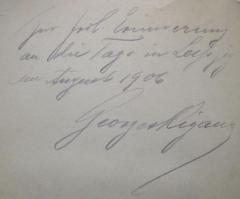 Zur frdl. Erinnerung
an die Tage in Leipzig
im August 1906
Georges